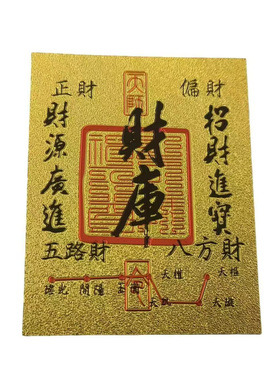 正財
偏財
天師
財源廣進
財庫
招財進寶
五路財
八方財
開陽
天權
天樞
天璇